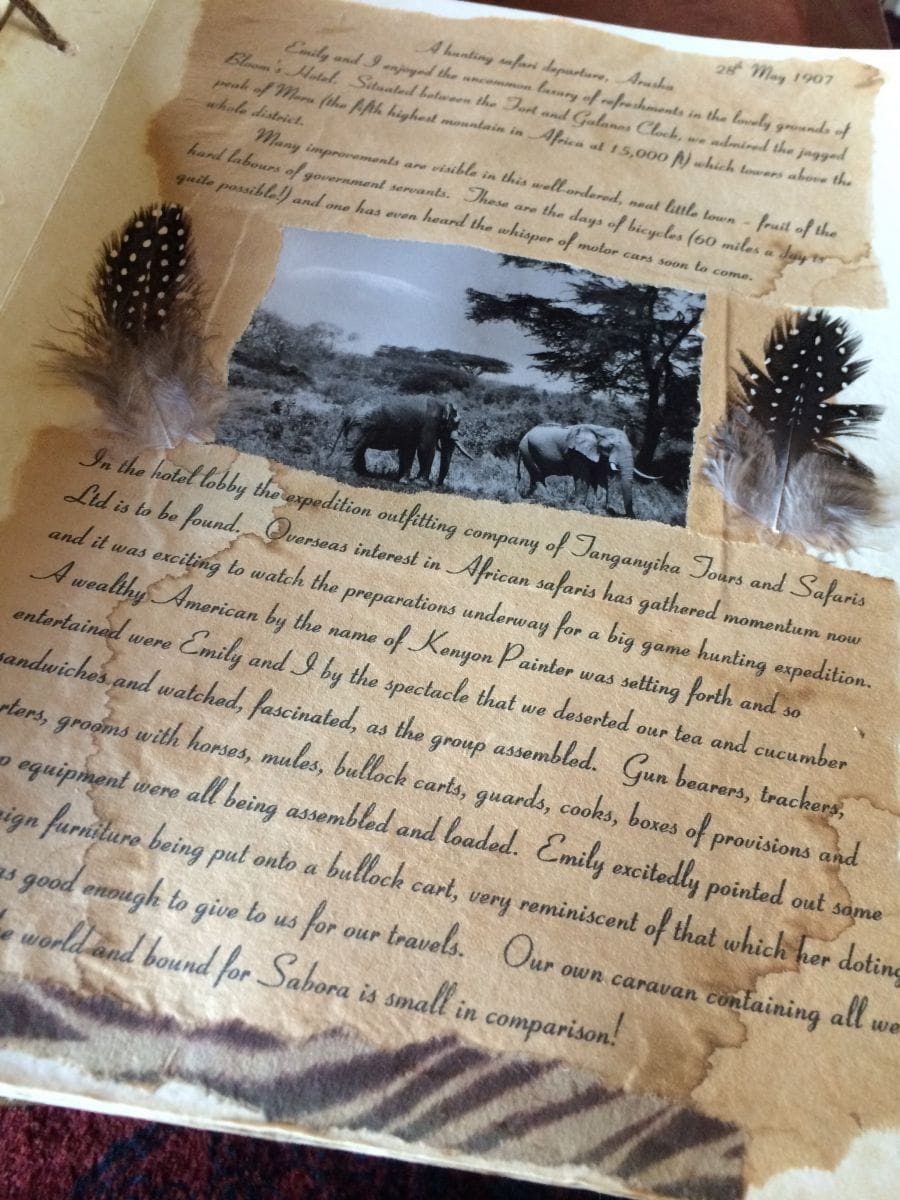 A hunting safari departure, Arusha
28th May 1907
Emily and I enjoyed the uncommon luxury of refreshments in the lovely grounds of
Bloom's Hotel. Situated between the Fort and Galanos Clock, we admired the jagged
peak of Meru (the fifth highest mountain in Africa at 15,000 ft) which towers above the
whole district.
Many improvements are visible in this well-ordered, neat little town - fruit of the
hard labours of government servants. These are the days of bicycles (60 miles a day is
quite possible!) and one has even heard the whisper of motor cars soon to come.
In the hotel lobby the expedition outfitting company of Tanganyika Tours and Safaris
Ltd is to be found. Overseas interest in African safaris has gathered momentum now
and it was exciting to watch the preparations underway for a big game hunting expedition.
A wealthy American by the name of Kenyon Painter was setting forth and so
entertained were Emily and I by the spectacle that we deserted our tea and cucumber
sandwiches and watched, fascinated, as the group assembled. Gun bearers, trackers,
rters, grooms with horses, mules, bullock carts, guards, cooks, boxes of provisions and
p equipment were all being assembled and loaded. Emily excitedly pointed out some
aign furniture being put onto a bullock cart, very reminiscent of that which her doting
as good enough to give to us for our travels. Our own caravan containing all we
he world and bound for Sabora is small in comparison!